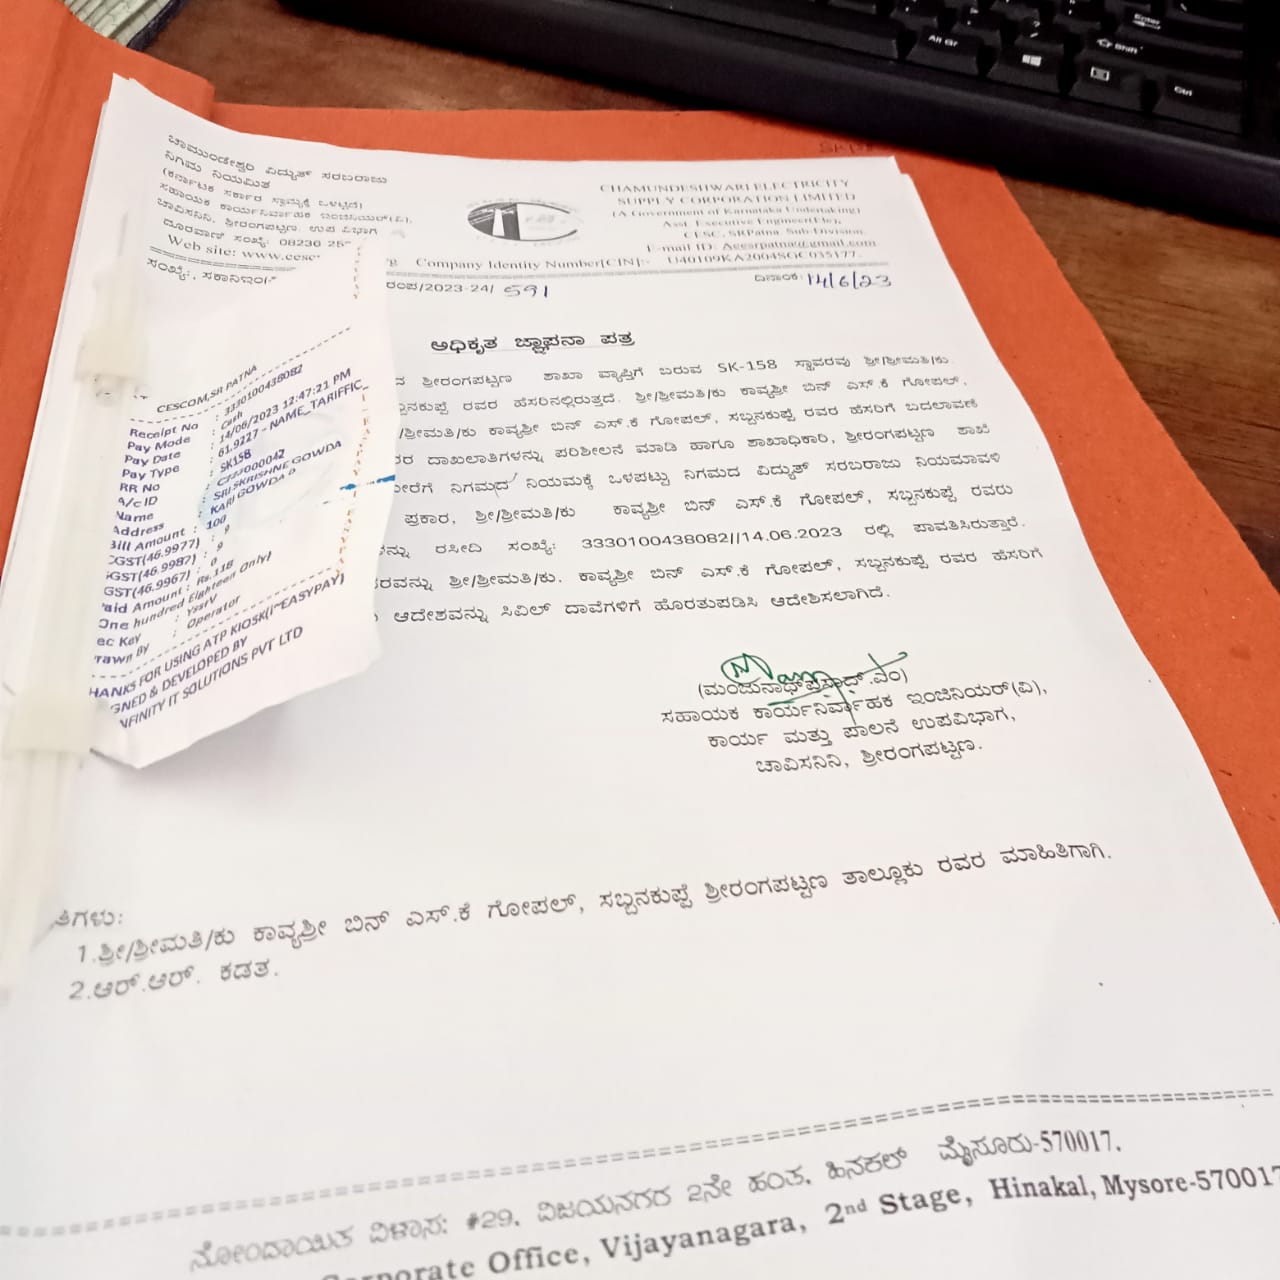 ಚಾಮುಂಡೇಶ್ವರಿ ವಿದ್ಯುತ್ ಸರಬರಾಜು
ನಿಗಮ ನಿಯಮಿತ
(ಕರ್ನಾಟಕ ಸರ್ಕಾರ ಸ್ವಾಮ್ಯಕ್ಕೆ ಒಳಪಟ್ಟಿದೆ)
ಸಹಾಯಕ ಕಾರ್ಯನಿರ್ವಾಹಕ ಇಂಜಿನಿಯರ್(ವಿ).
ಚಾವಿಸನಿನಿ, ಶ್ರೀರಂಗಪಟ್ಟಣ. ಉಪ ವಿಭಾಗ
ದೂರವಾಣಿ ಸಂಖ್ಯೆ: 08236 25
Web site: www.cesc
CHAMUNDESHWARI ELECTRICITY
SUPPLY CORPORATION LIMITED
(A Government of Karnataka Undertaking)
Asst. Executive Engineer(Ele),
CESC, SRPatna. Sub Division.
E-mail ID: Aeesrpatna@gmail.com
rg Company Identity Number[CIN]:- U40109KA2004SGC035177.
ಸಂಖ್ಯೆ:
/2023-24/ 591
ದಿನಾಂಕ: 14/6/23
ಅಧಿಕೃತ ಜ್ಞಾಪನಾ ಪತ್ರ
ಶ್ರೀರಂಗಪಟ್ಟಣ ಶಾಖಾ ವ್ಯಾಪ್ತಿಗೆ ಬರುವ SK-158 ಸ್ಥಾವರವು ಶ್ರೀ/ಶ್ರೀಮತಿ/ಕು.
ರವರ ಹೆಸರಿನಲ್ಲಿರುತ್ತದೆ. ಶ್ರೀ/ಶ್ರೀಮತಿ/ಕು ಕಾವ್ಯಶ್ರೀ ಬಿನ್ ಎಸ್.ಕೆ ಗೋಪಲ್,
/ಶ್ರೀಮತಿ/ಕು ಕಾವ್ಯಶ್ರೀ ಬಿನ್ ಎಸ್.ಕೆ ಗೋಪಲ್, ಸಬ್ಬನಕುಪ್ಪೆ ರವರ ಹೆಸರಿಗೆ ಬದಲಾವಣೆ
ದಾಖಲಾತಿಗಳನ್ನು ಪರಿಶೀಲನೆ ಮಾಡಿ ಹಾಗೂ ಶಾಖಾಧಿಕಾರಿ, ಶ್ರೀರಂಗಪಟ್ಟಣ ಶಾಖೆ
ನಿಗಮದ ನಿಯಮಕ್ಕೆ ಒಳಪಟ್ಟು ನಿಗಮದ ವಿದ್ಯುತ್ ಸರಬರಾಜು ನಿಯಮಾವಳಿ
ಪ್ರಕಾರ, ಶ್ರೀ/ಶ್ರೀಮತಿ/ಕು ಕಾವ್ಯಶ್ರೀ ಬಿನ್ ಎಸ್.ಕೆ ಗೋಪಲ್, ಸಬ್ಬನಕುಪ್ಪೆ ರವರು
ರಸೀದಿ ಸಂಖ್ಯೆ: 3330100438082//14.06.2023 ರಲ್ಲಿ ಪಾವತಿಸಿರುತ್ತಾರೆ.
ಶ್ರೀ/ಶ್ರೀಮತಿ/ಕು. ಕಾವ್ಯಶ್ರೀ ಬಿನ್ ಎಸ್.ಕೆ ಗೋಪಲ್, ಸಬ್ಬನಕುಪ್ಪೆ ರವರ ಹೆಸರಿಗೆ
ಆದೇಶವನ್ನು ಸಿವಿಲ್ ದಾವೆಗಳಿಗೆ ಹೊರತುಪಡಿಸಿ ಆದೇಶಿಸಲಾಗಿದೆ.
CESCOM,SR PATNA
Receipt No : 3330100438082
Pay Mode : Cash
Pay Date : 14/06/2023 12:47:21 PM
Pay Type : 61.9227 - NAME_TARIFFIC_
RR No : SK158
A/c ID
Name : SRI.SKRISHNE GOWDA
Address : KARI GOWDA
Bill Amount : 100
CGST(46.9977) : 9
GST(46.9987) : 9
GST(46.9967) : 0
aid Amount : Rs.118
One hundred Eighteen Only)
ec Key
rawn By : Operator
HANKS FOR USING ATP KIOSK(I~EASYPAY)
GNED & DEVELOPED BY
NFINITY IT SOLUTIONS PVT LTD
(ಮಂಜುನಾಥ್‌ಪ್ರಸಾದ್ .ಎಂ)
ಸಹಾಯಕ ಕಾರ್ಯನಿರ್ವಾಹಕ ಇಂಜಿನಿಯರ್(ವಿ),
ಕಾರ್ಯ ಮತ್ತು ಪಾಲನೆ ಉಪವಿಭಾಗ,
ಚಾವಿಸನಿನಿ, ಶ್ರೀರಂಗಪಟ್ಟಣ.
ತಿಗಳು:
1.ಶ್ರೀ/ಶ್ರೀಮತಿ/ಕು ಕಾವ್ಯಶ್ರೀ ಬಿನ್ ಎಸ್.ಕೆ ಗೋಪಲ್, ಸಬ್ಬನಕುಪ್ಪೆ ಶ್ರೀರಂಗಪಟ್ಟಣ ತಾಲ್ಲೂಕು ರವರ ಮಾಹಿತಿಗಾಗಿ.
2.ಆರ್.ಆರ್. ಕಡತ.
ನೋಂದಾಯಿತ ವಿಳಾಸ: #29, ವಿಜಯನಗರ 2ನೇ ಹಂತ, ಹಿನಕಲ್ ಮೈಸೂರು-570017.
Corporate Office, Vijayanagara, 2nd Stage, Hinakal, Mysore-570017
Alt Gr
Enter
Shift
Ctrl